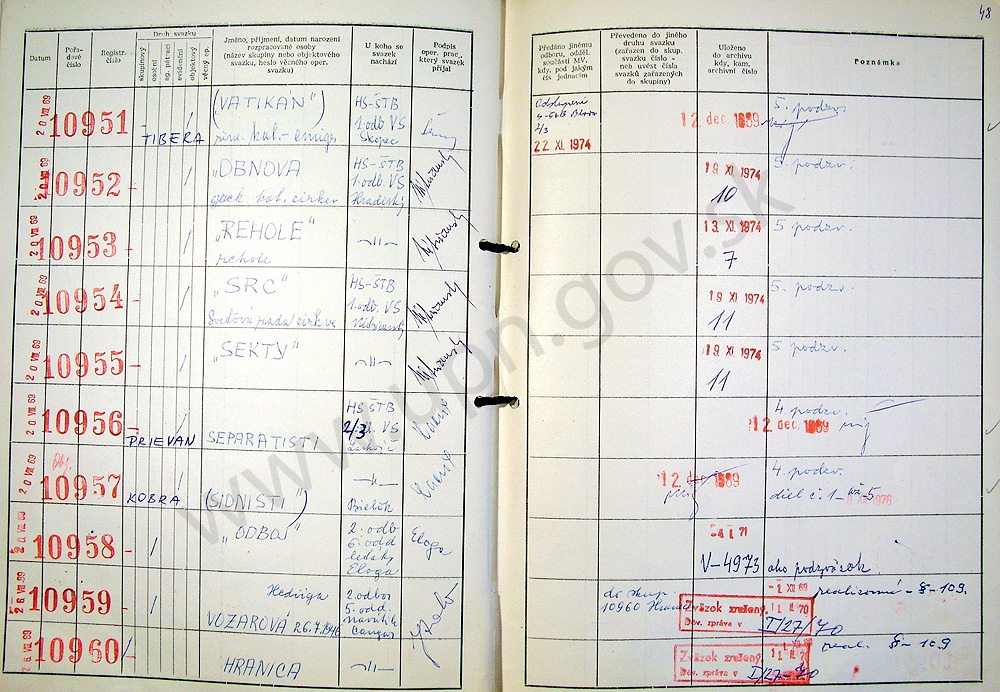 48
Datum
Pořa-
dové
číslo
Registr.
číslo
Druh svazku
skupinový
osobní
sg. pátrací
evidenční
objektový
věcný op.
Jméno, příjmení, datum narození
rozpracované osoby
(název skupiny nebo objektového
svazku, heslo věcného oper.
svazku)
U koho se
svazek
nachází
Podpis
oper. prac.,
který svazek
přijal
Předáno jinému
odboru, odděl.
součásti MV,
kdy, pod jakým
čís. jednacím
Převedeno do jiného
druhu svazku
(zařazen do skup.
svazku číslo -
neb uvést čísla
svazků zařazených
do skupiny)
Uloženo
do archivu
kdy, kam,
archivní číslo
Poznámka
20 VIII 69
10951 -
TIBERA
(VATIKÁN")
HS-ŠTB
1. odb. VS
Skopec
2/3
22 XI. 1974
12 dec. 1989
5. podzv.
20 VIII 69
10952 -
"OBNOVA
HS-ŠTB
1. odb. VS
Hradiský
19 XI 1974
10
5. podzv.
20 VIII 69
10953 -
"REHOLE"
rehole
-"-
13. XI 1974
7
5 podzv.
20 VIII 69
10954 -
"SRC"
HS-ŠTB
1. odb. VS
19 XI 1974
11
5. podzv.
20 VIII 69
10955 -
"SEKTY"
-"-
19 XI 1974
11
5 podzv.
20 VIII 69
10956 -
PRIEVAN
SEPARATISTI
HS ŠTB
2/3
VS
12 dec. 1989
4 podzv.
20 VIII 69
Obj.
10957 -
KOBRA
(SIONISTI")
-"-
Bielok
12 dec. 1989
4. podzv.
diel č. 1 - až - 5
1976
20 VIII 69
10958 -
"ODBOJ
2. odb
6. odd
letáky
Eloga
Eloga
4 I 71
V-4973
ako podzväzok.
26 VIII 69
10959 -
Hedviga
VOZAROVÁ 26.7.1946
2. odbor
5. odd.
do skup.
10960
1 XII 69
realizovné - § - 109.
Zväzok zrušený.
Dôv. zpráva v
I/27/70
26 VIII 69
10960
HRANICA
-"-
real. § - 109
Zväzok zrušený.
Dôv. zpráva v
I/27-70
www.upn.gov.sk